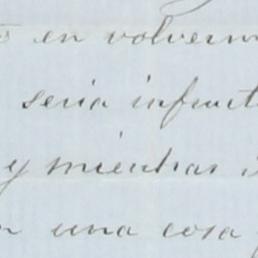 en volverm
seria infruct
y mientras
una cosa